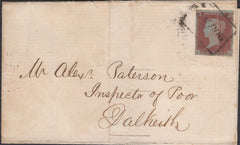 Mr Alexr. Paterson
Inspector of Poor
Dalkeith